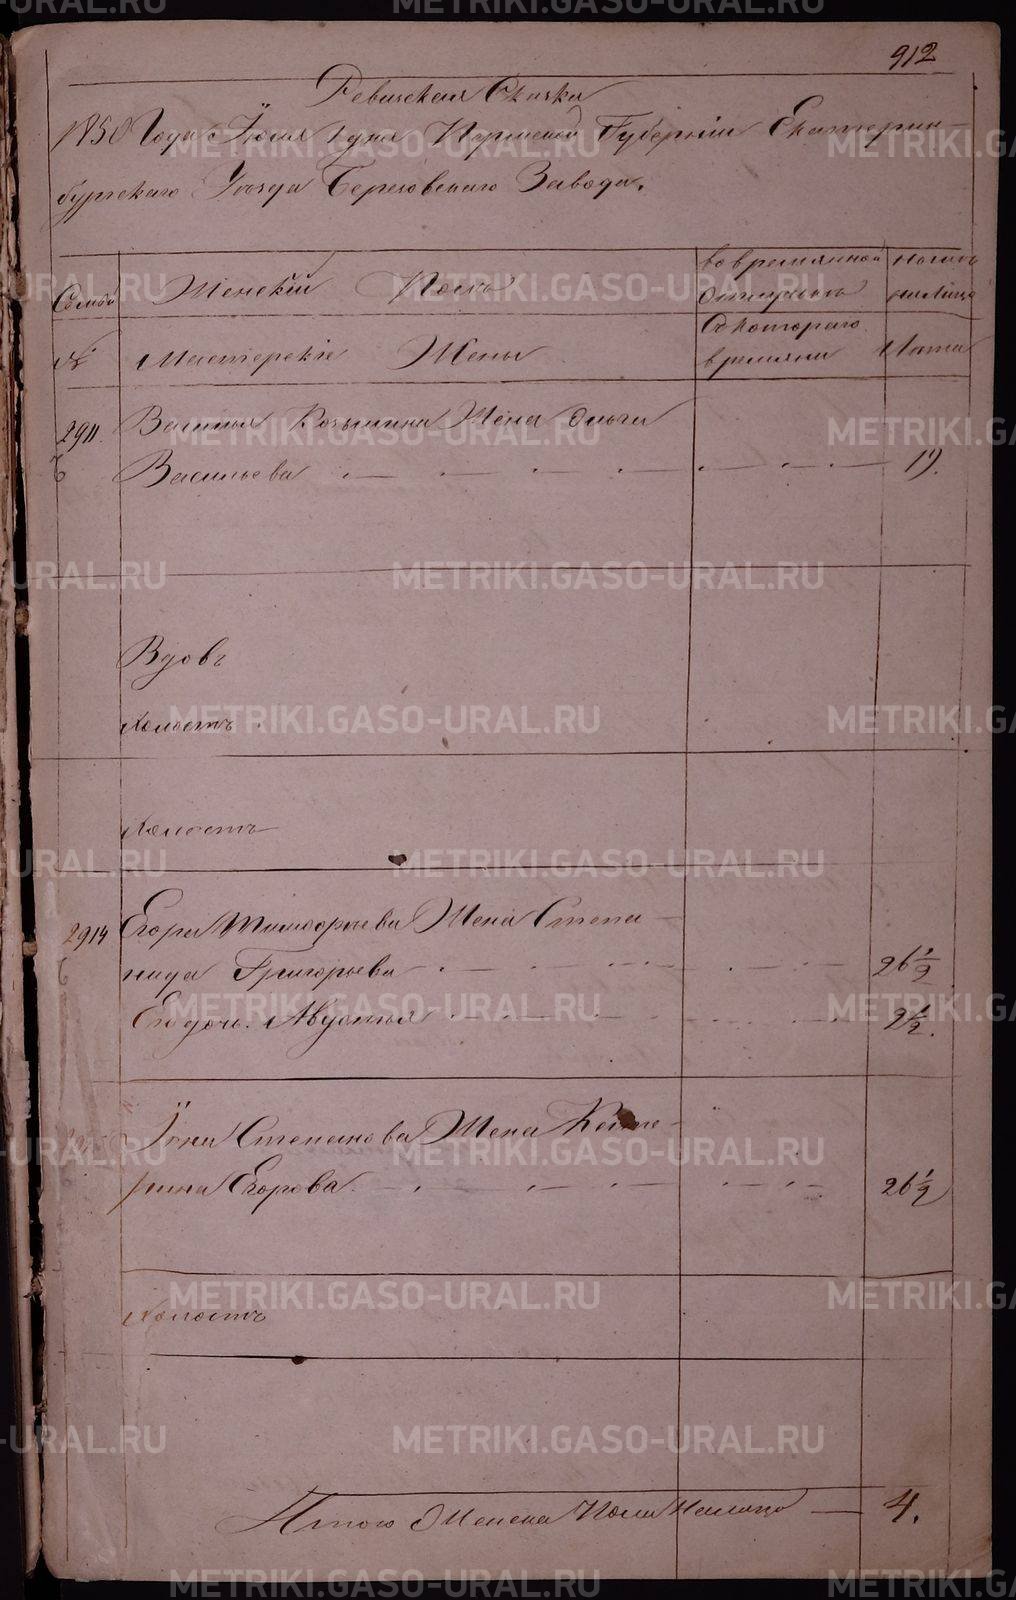 912
Ревизская Сказка
1850 Года Июля 1 дня Пермской Губернiи Екатерин-
бургского Уезда Березовского Завода.
Семьи
Женскiй Полъ
во временной
отлучкѣ
на лицо
№
Мастерскiе Жены
Съ котораго
времяни
Лѣта
2911.
Василья Козьмина Жена Ольга
Васильева
19.
Вдовъ
Холостъ
Холостъ
2914
Егора Тимофѣева Жена Степа-
нида Григорьева
26 1/2
Его дочь: Авдотья
2 1/2.
Iоны Степанова Жена Кате-
рина Егорова
26 1/2
Холостъ
Итого Женска Пола На лицо
4.
METRIKI.GASO-URAL.RU